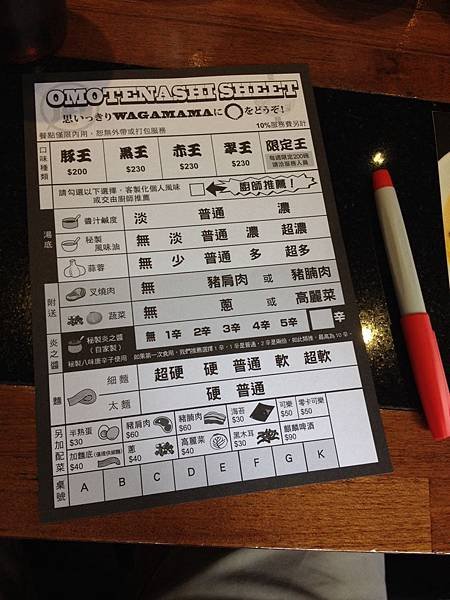 OMOTENASHI SHEET
思いっきりWAGAMAMAに〇をどうぞ!
餐點僅限內用,恕無外帶或打包服務 10%服務費另計
口味種類 豚王 $200 黑王 $230 赤王 $230 翠王 $230 限定王 每週限定200碗 請洽服務人員
請勾選以下選擇,客製化個人風味
或交由廚師推薦 廚師推薦!
湯底
醬汁鹹度 淡 普通 濃
秘製風味油 無 淡 普通 濃 超濃
蒜蓉 無 少 普通 多 超多
附送
叉燒肉 無 豬肩肉 或 豬腩肉
蔬菜 無 蔥 或 高麗菜
炎之醬
秘製炎之醬(自家製) 無 1辛 2辛 3辛 4辛 5辛 辛
秘製八味唐辛子使用 如果第一次食用,我們推薦選擇1辛,1辛是普通,2辛是兩倍,如此類推,最高為10辛。
麵
細麵 超硬 硬 普通 軟 超軟
太麵 硬 普通
另加配菜
半熟蛋 $30 豬肩肉 $60 豬腩肉 $60 海苔 $30 可樂 $50 零卡可樂 $50
加麵底 $40 蔥 $40 高麗菜 $40 黑木耳 $30 麒麟啤酒 $90
桌號 A B C D E F G K